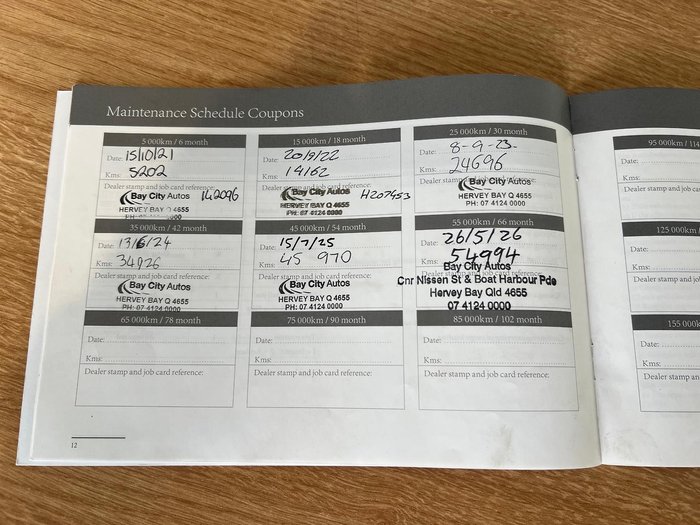 Maintenance Schedule Coupons
5 000km / 6 month
Date: 15/10/21
Kms: 5202
Dealer stamp and job card reference:
Bay City Autos 142096
HERVEY BAY Q 4655
PH: 07 4124 0000
15 000km / 18 month
Date: 20/9/22
Kms: 14162
Dealer stamp and job card reference:
Bay City Autos H207453
HERVEY BAY Q 4655
PH: 07 4124 0000
25 000km / 30 month
Date: 8-9-23
Kms: 24696
Dealer stamp and job card reference:
Bay City Autos
HERVEY BAY Q 4655
PH: 07 4124 0000
35 000km / 42 month
Date: 13/6/24
Kms: 34926
Dealer stamp and job card reference:
Bay City Autos
HERVEY BAY Q 4655
PH: 07 4124 0000
45 000km / 54 month
Date: 15/7/25
Kms: 45 970
Dealer stamp and job card reference:
Bay City Autos
HERVEY BAY Q 4655
PH: 07 4124 0000
55 000km / 66 month
Date: 26/5/26
Kms: 54994
Dealer stamp and job card reference:
Bay City Autos
Cnr Nissen St & Boat Harbour Pde
Hervey Bay Qld 4655
07 4124 0000
65 000km / 78 month
Date:
Kms:
Dealer stamp and job card reference:
75 000km / 90 month
Date:
Kms:
Dealer stamp and job card reference:
85 000km / 102 month
Date:
Kms:
Dealer stamp and job card reference:
12
95 000km / 114
Date:
Kms:
Dealer stamp and
125 000km /
Date:
Kms:
Dealer stamp and
155 000k
Date:
Kms:
Dealer stamp and